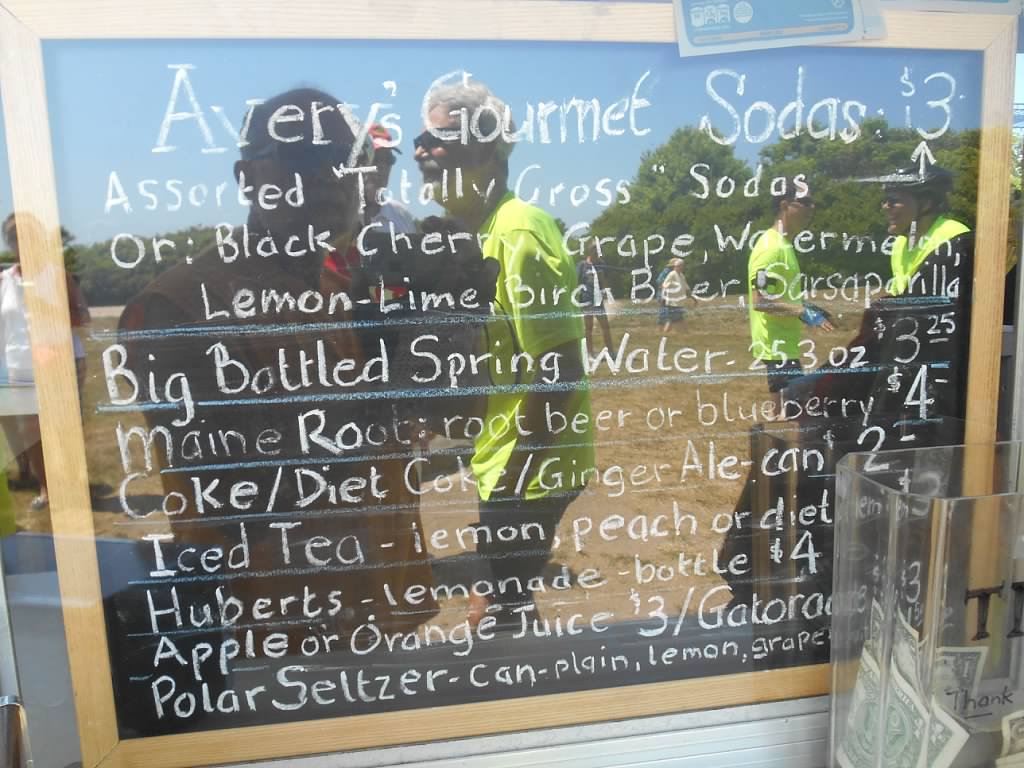 Avery's Gourmet Sodas: $3
Assorted "Totally Gross" Sodas
Or: Black Cherry, Grape, Watermelon,
Lemon-Lime, Birch Beer, Sarsaparilla
Big Bottled Spring Water - 25.3 oz $3.25
Maine Root: root beer or blueberry $4-
Coke/Diet Coke/Ginger Ale-can $2-
Iced Tea - lemon, peach or diet
Huberts - lemonade - bottle $4
Apple or Orange Juice $3/
Polar Seltzer-can-plain, lemon, grape
Thank